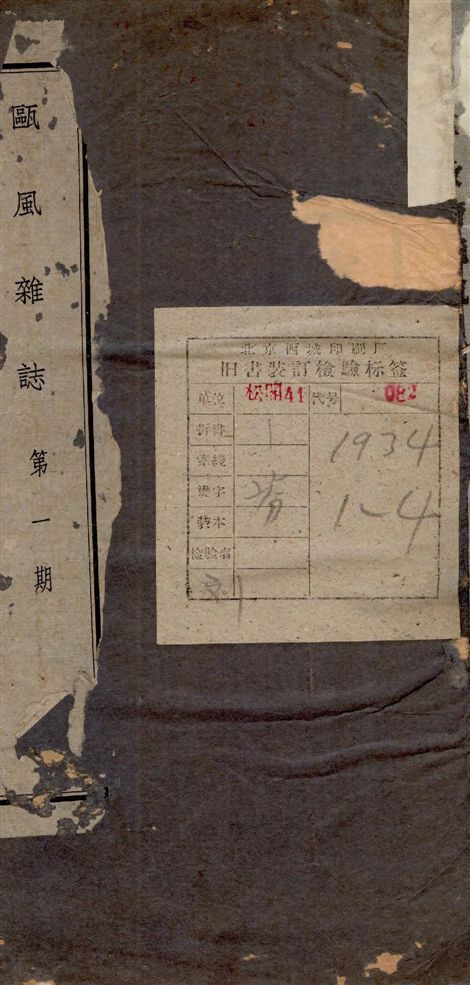 甌風雜誌 第一期
北京西城印刷厂
旧書装訂檢驗标签
单位 松開41 代号 082
拆書 1
索綫
烫字 有
装本
检验者
刘
1934
1-4